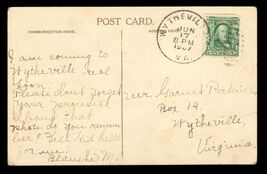 POST CARD.
COMMUNICATION HERE.
WYTHEVIL
JUN
17
8 PM
1907
VA.
I am coming to
Wytheville real
soon.
Please dont forget
your promise
about that
photo. do you remem
ber
for me.
Blanche M.
Mr. Garnet Perkins
Box 14.
Wytheville,
Virginia.